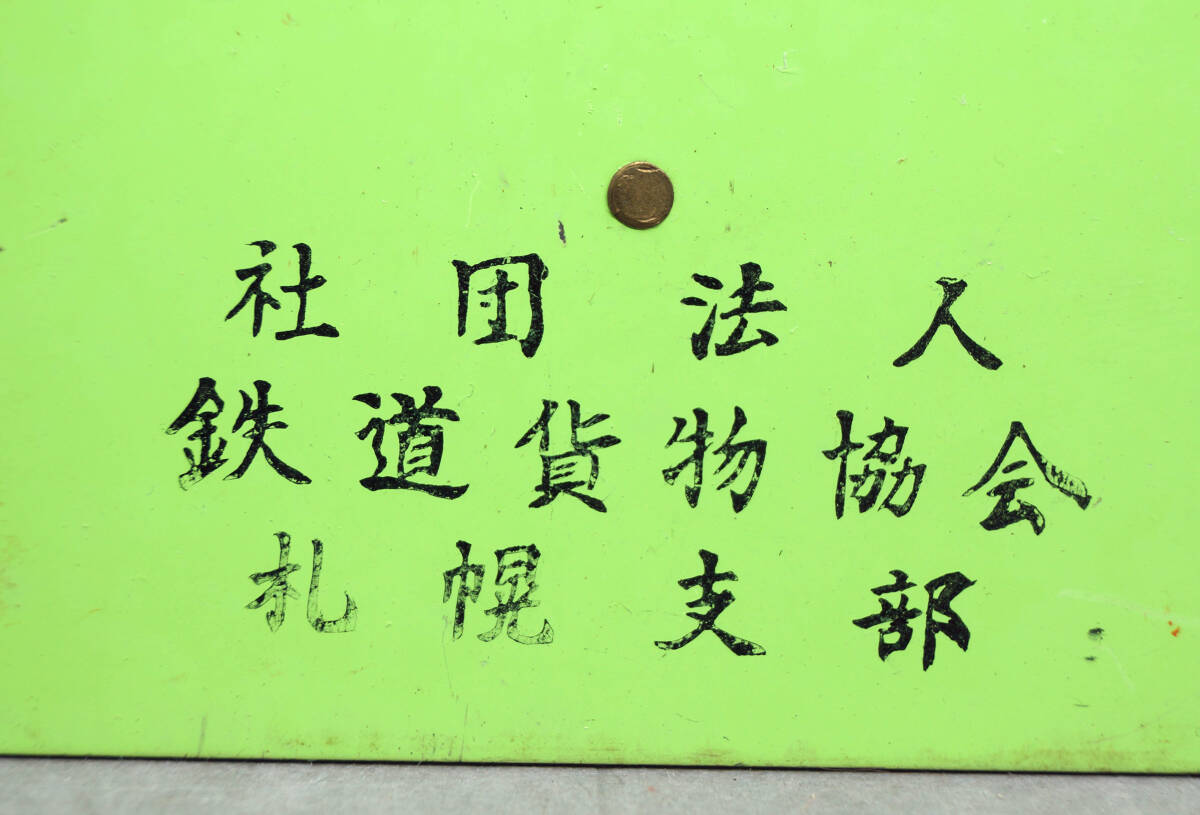 社団法人
鉄道貨物協会
札幌支部